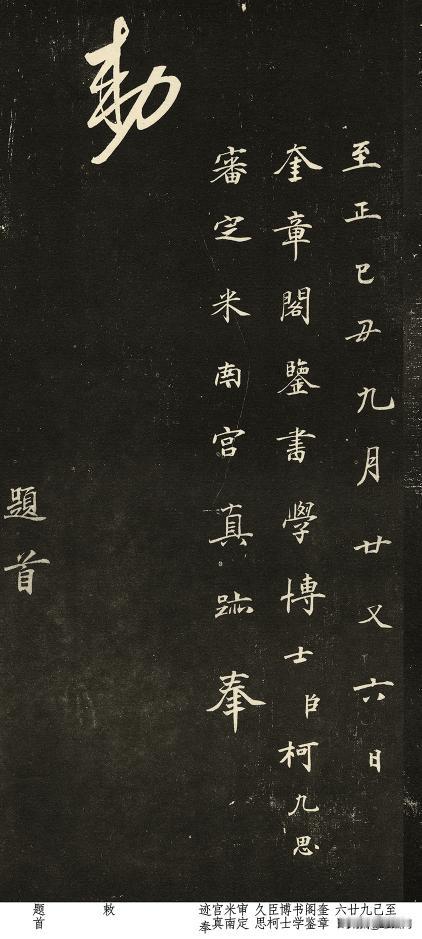 至正己丑九月廿又六日
奎章閣鑒書學博士臣柯九思
審定米南宮真跡奉
勅
題首
至己九廿六
奎章阁鉴书学博士臣柯久思
审定米南官真迹奉
敕
题首